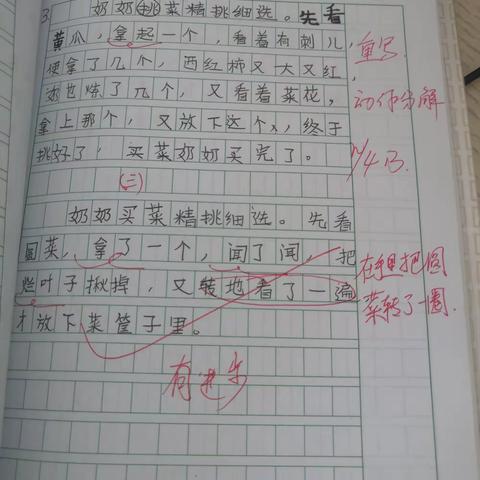 3.
奶奶挑菜精挑细选。先看
黄瓜，拿起一个，看着有刺儿，
便拿了几个，西红柿又大又红，
奶也炼了几个，又看着菜花，
拿上那个，又放下这个，终于
挑好了，买菜奶奶买完了。
重写
动作分解
11/4 B.
(二)
奶奶买菜精挑细选。先看
圆菜，拿了一个，闻了闻，把
烂叶子揪掉，又转地看了一遍
才放下菜筐子里。
在手里把圆
菜转了一圈.
有进步